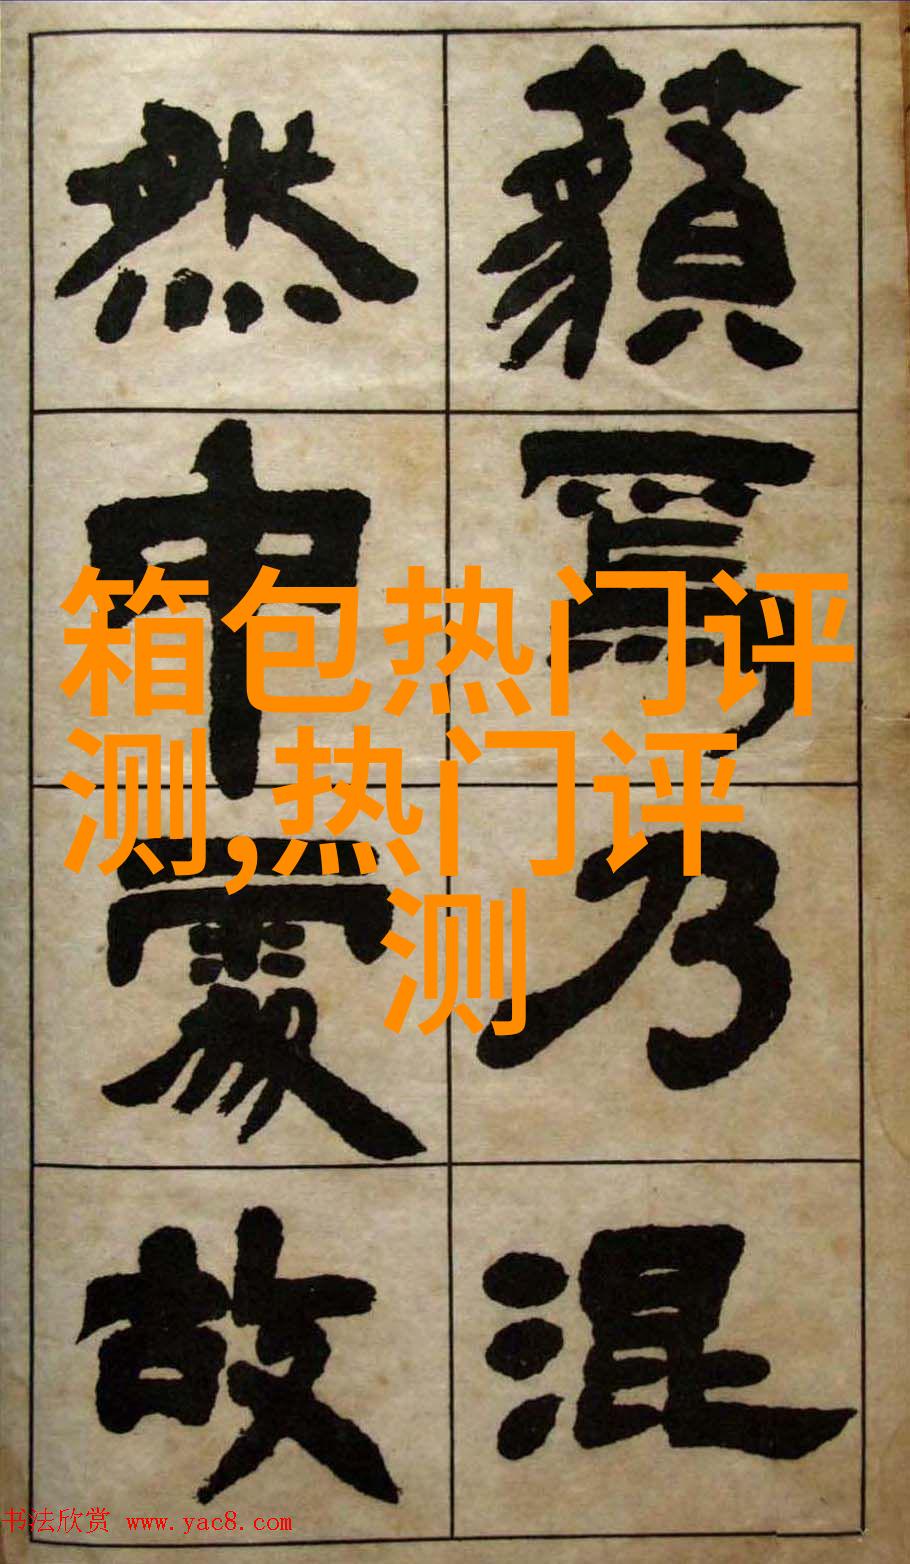 箱包热门评
测,热门评
测
乃
混
然
中
故
书法欣赏 www.yac8.com